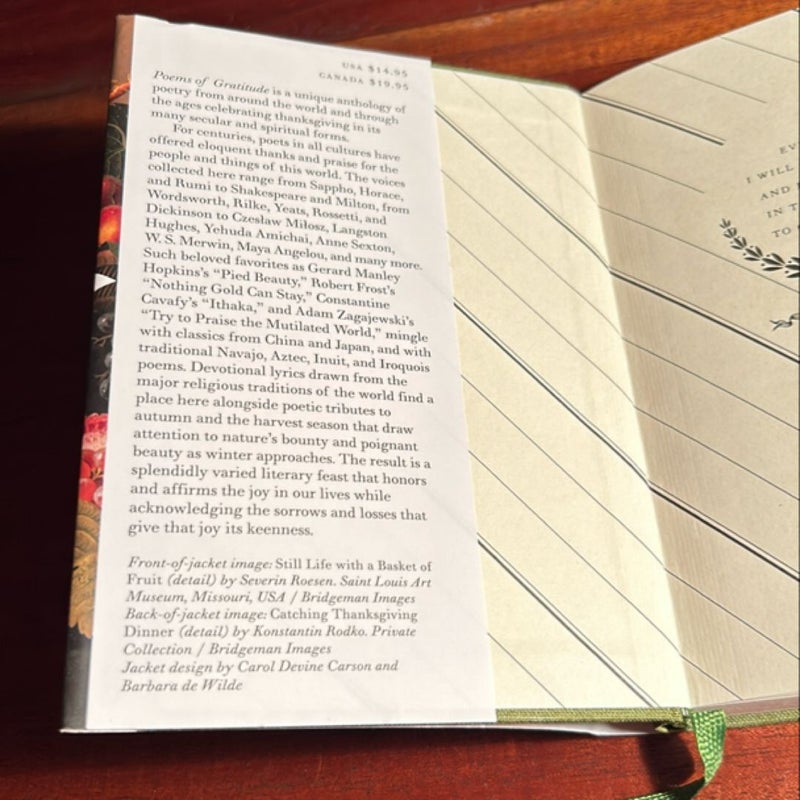 USA $14.95
CANADA $19.95
Poems of Gratitude is a unique anthology of
poetry from around the world and through
the ages celebrating thanksgiving in its
many secular and spiritual forms.
For centuries, poets in all cultures have
offered eloquent thanks and praise for the
people and things of this world. The voices
collected here range from Sappho, Horace,
and Rumi to Shakespeare and Milton, from
Wordsworth, Rilke, Yeats, Rossetti, and
Dickinson to Czesław Miłosz, Langston
Hughes, Yehuda Amichai, Anne Sexton,
W. S. Merwin, Maya Angelou, and many more.
Such beloved favorites as Gerard Manley
Hopkins's “Pied Beauty,” Robert Frost's
“Nothing Gold Can Stay,” Constantine
Cavafy's “Ithaka,” and Adam Zagajewski's
“Try to Praise the Mutilated World,” mingle
with classics from China and Japan, and with
traditional Navajo, Aztec, Inuit, and Iroquois
poems. Devotional lyrics drawn from the
major religious traditions of the world find a
place here alongside poetic tributes to
autumn and the harvest season that draw
attention to nature's bounty and poignant
beauty as winter approaches. The result is a
splendidly varied literary feast that honors
and affirms the joy in our lives while
acknowledging the sorrows and losses that
give that joy its keenness.
Front-of-jacket image: Still Life with a Basket of
Fruit (detail) by Severin Roesen. Saint Louis Art
Museum, Missouri, USA / Bridgeman Images
Back-of-jacket image: Catching Thanksgiving
Dinner (detail) by Konstantin Rodko. Private
Collection / Bridgeman Images
Jacket design by Carol Devine Carson and
Barbara de Wilde
EV
I WILL
AND
IN T
TO